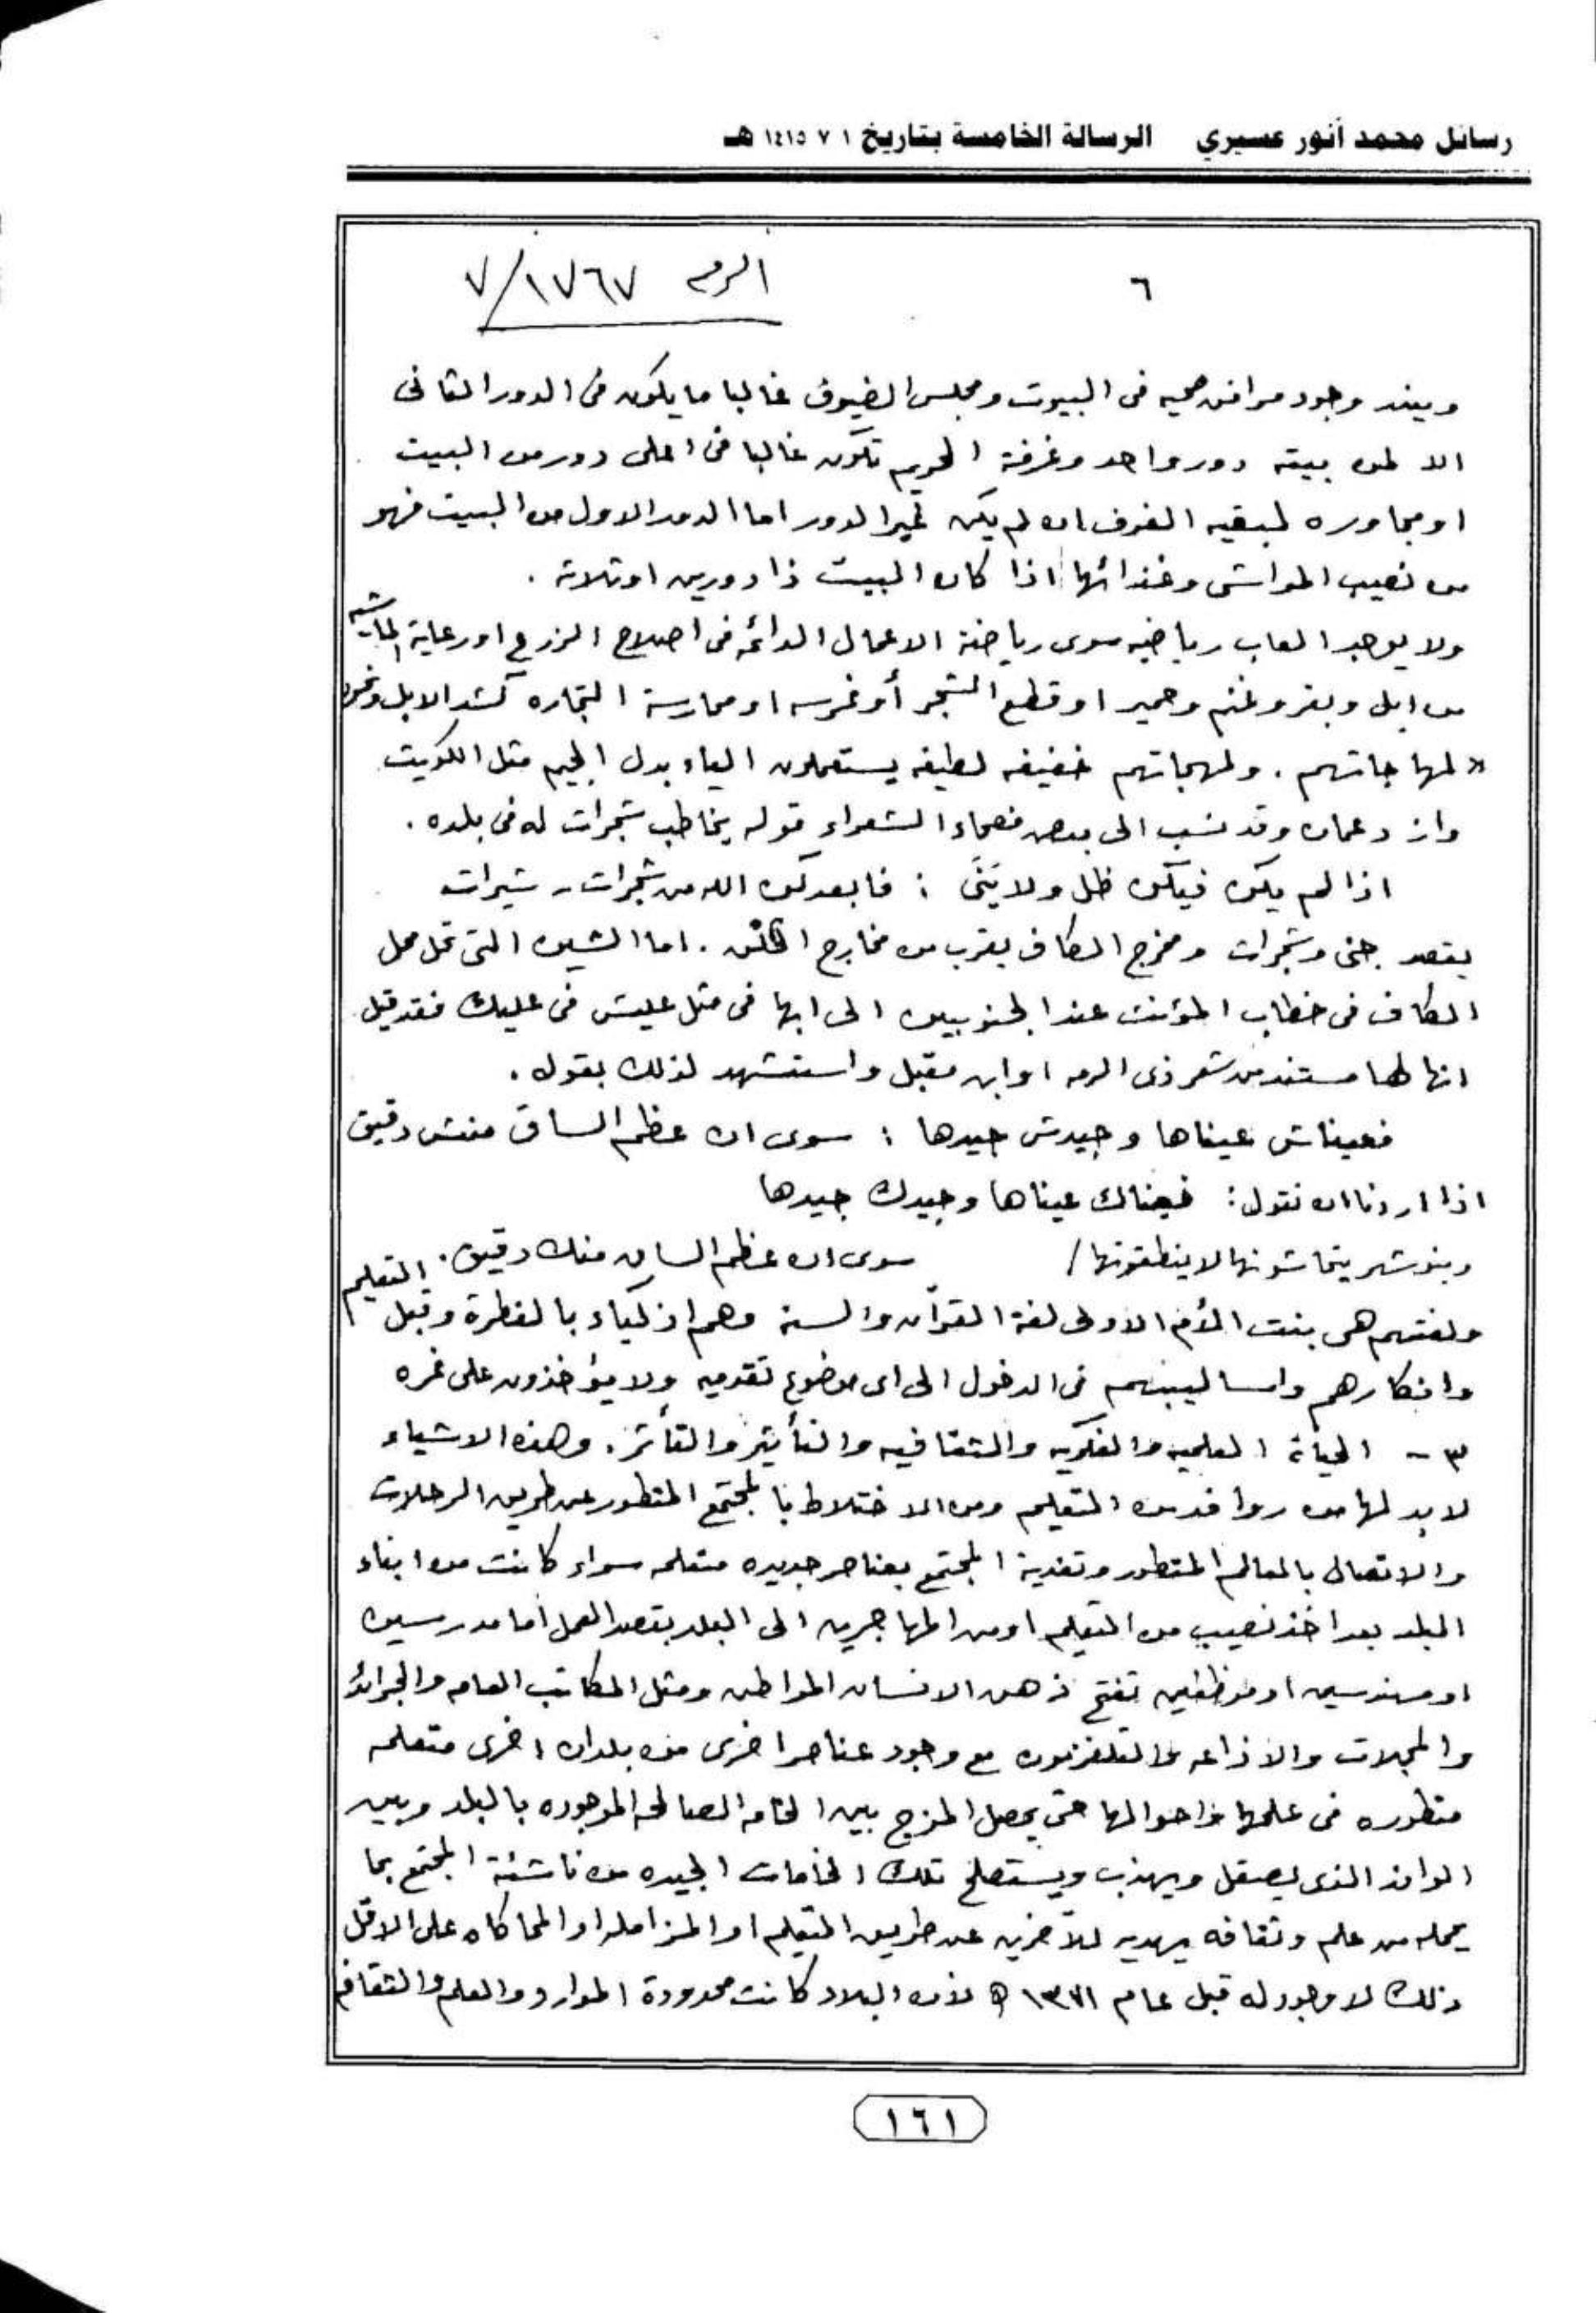 رسائل محمد أنور عسيري الرسالة الخامسة بتاريخ ١ ٧ ١٤١٥ هـ
٦ الرقم ١٧٦٧/٧
ويند وجود مرافق صحيه فى البيوت ومجلس الضيوف غالبا ما يكون فى الدور الثانى
الا لمن بيته دور واحد وغرفة الحريم تكون غالبا فى اعلى دور من البيت
او مجاوره لبقيه الغرف ان لم يكن غير الدور اما الدور الاول من البيت فهو
من نصيب المواشى وغذائها اذا كان البيت ذا دورين او ثلاثه .
ولا يوجد العاب رياضيه سوى رياضة الاعمال الدائمه فى اصلاح الزرع او رعاية الماشيه
من ابل وبقر وغنم وحمير او قطع الشجر أو غرسه او ممارسة التجاره كشد الابل ونحوه
« لهاجاتهم . ولهجاتهم خفيفه لطيفه يستعملون الياء بدل الجيم مثل الكويت
وازد عمان وقد نسب الى بعض فصحاء الشعراء قوله يخاطب شجرات له فى بلده .
اذا لم يكن فيكن ظل ولا يَنَى : فابعدكن الله من شجرات - شيرات
يقصد جنى وشجرات ومخرج الكاف يقرب من مخارج . اما الشين التى تحل محل
الكاف فى خطاب المؤنث عند الجنوبيين الى ابها فى مثل عليش فى عليك فقد قيل
انها لها مستند من شعر ذى الرمه او ابن مقبل واستشهد لذلك بقوله .
فعيناش عيناها وجيدش جيدها : سوى ان عظم الساق منش دقيق
اذا اردنا ان نقول : فعيناك عيناها وجيدك جيدها
وبنو شهر يتحاشونها لا ينطقونها / سوى ان عظم الساق منك دقيق .
ولغتهم هى بنت الأم الاولى لغة القرآن والسنه وهم اذكياء بالفطرة وقبل التعليم
وافكارهم واساليبهم فى الدخول الى اى موضوع تقدميه ولا يؤخذون على غره
٣ - الحياة العلميه والفكريه والثقافيه والتأثير والتأثر . وهذه الاشياء
لا بد لها من روافد من التعليم ومن الاختلاط بالمجتمع المتطور عن طريق الرحلات
والاتصال بالعالم المتطور وتغدية المجتمع بعناصر جديده متعلمه سواء كانت من ابناء
البلد بعد اخذ نصيب من التعليم او من المهاجرين الى البلد بقصد العمل اما مدرسين
او مهندسين او موظفين تفتح ذهن الانسان المواطن ومثل المكاتب العامه والجرائد
والمجلات والاذاعه والتلفزيون مع وجود عناصر اخرى من بلدان اخرى متعلمه
متطوره فى علمها واحوالها حتى يحصل المزج بين الخامه الصالحه الموجوده بالبلد وبين
الوافد الذى يصقل ويهذب ويستصلح تلك الخامات الجيده من ناشئة المجتمع بما
يحمله من علم وثقافه يهديه للآخرين عن طريق التعليم او المزامله او المحاكاه على الاقل
ذلك لا وجود له قبل عام ١٣٧١ ه لأن البلاد كانت محدودة الموارد والعلم والثقافه
١٦١